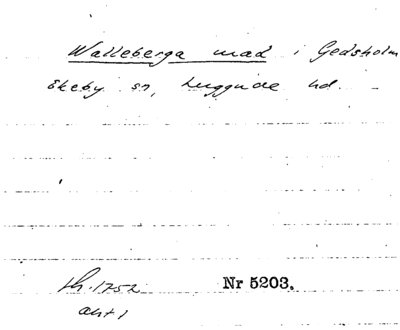 Walleberga mad i Gedsholm
Ekeby sn, Luggude hd.
lh. 1752
akt 1
Nr 5203.